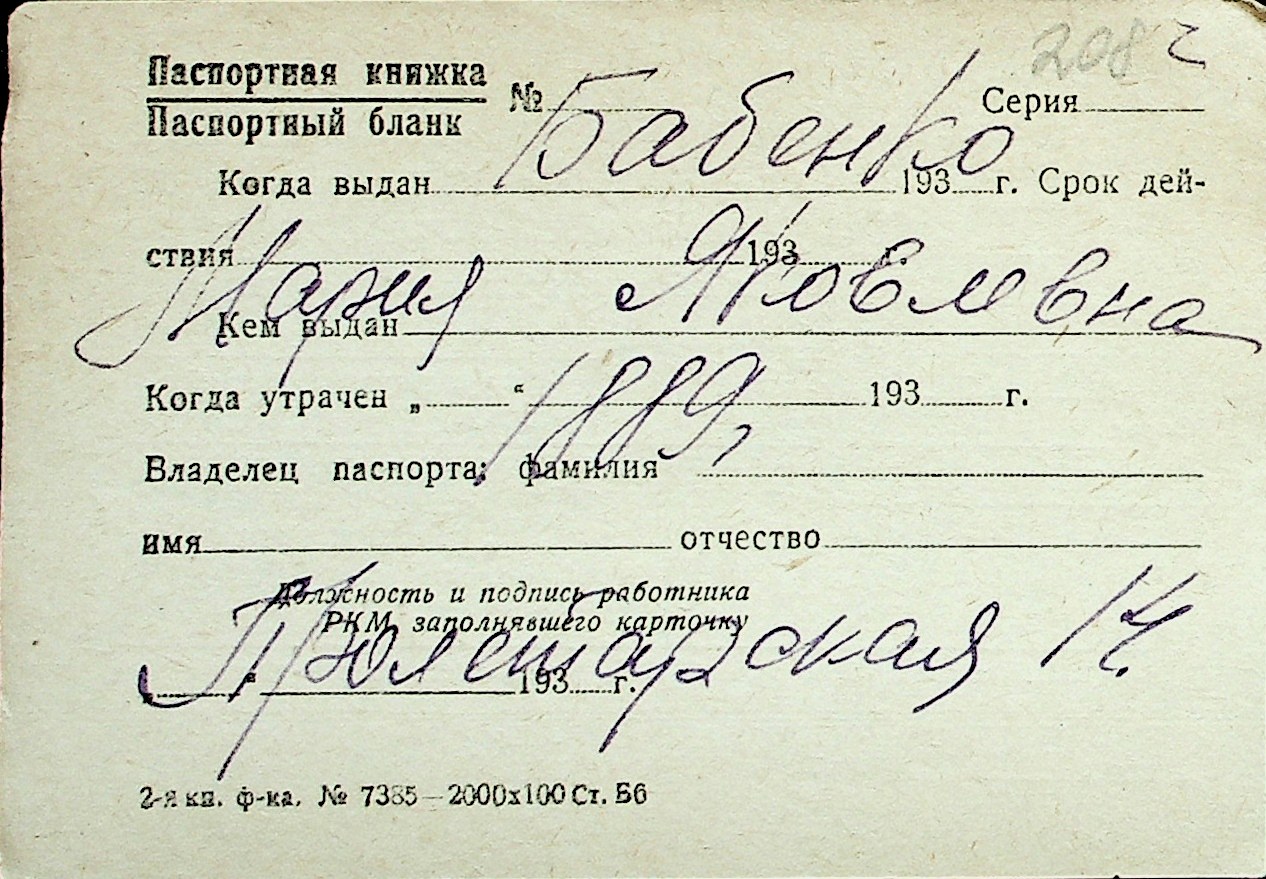 208
Паспортная книжка
Паспортный бланк
№ Серия
Бабенко
Когда выдан 193 г. Срок дей-
ствия 193 г.
Мария Яковлевна
Кем выдан
1889,
Когда утрачен „ “ 193 г.
Владелец паспорта: фамилия
имя отчество
Должность и подпись работника
РКМ, заполнявшего карточку
Пролетарская
„ “ 193 г.
2-я кн. ф-ка. № 7385—2000х100 Ст. Б6